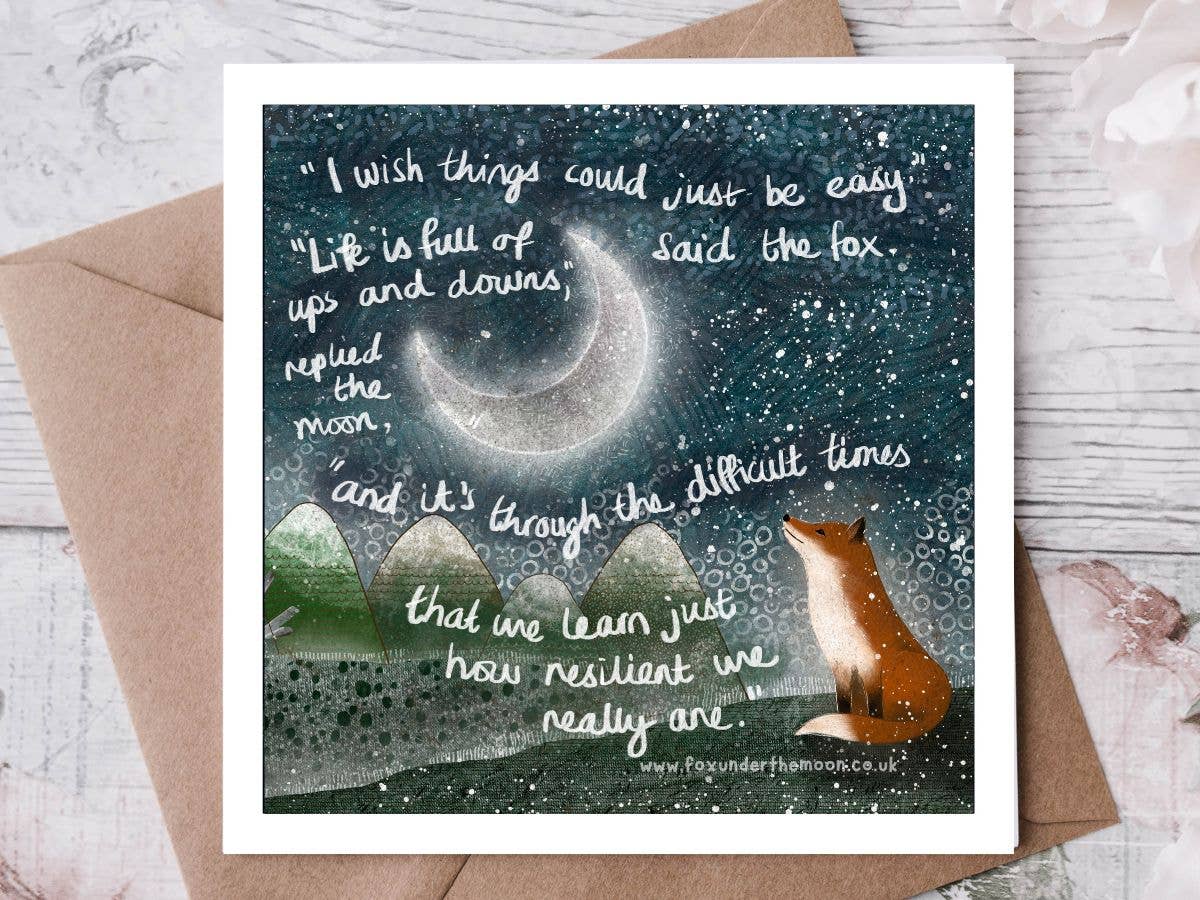 "I wish things could just be easy,"
said the fox.
"Life is full of
ups and downs,"
replied
the
moon,
"and it's through the difficult times
that we learn just
how resilient we
really are."
www.foxunderthemoon.co.uk